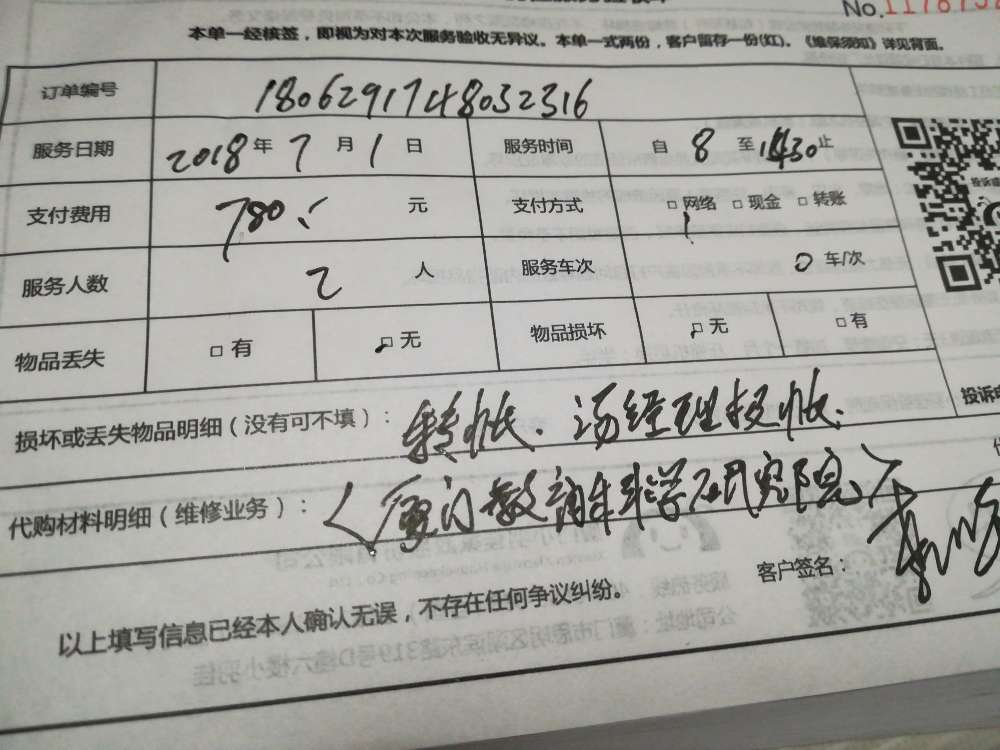 No.
本单一经核签，即视为对本次服务验收无异议。本单一式两份，客户留存一份(红)。《维保须知》详见背面。
订单编号 1806291748032316
服务日期 2018年7月1日 服务时间 自8至 30止
支付费用 780.- 元 支付方式 □网络 □现金 □转账
服务人数 2 人 服务车次 0 车/次
物品丢失 □有 □无 物品损坏 □无 □有
投诉
损坏或丢失物品明细（没有可不填）：转账.汤经理报账.
代购材料明细（维修业务）：〈厦门教育科学研究院〉
客户签名：
以上填写信息已经本人确认无误，不存在任何争议纠纷。